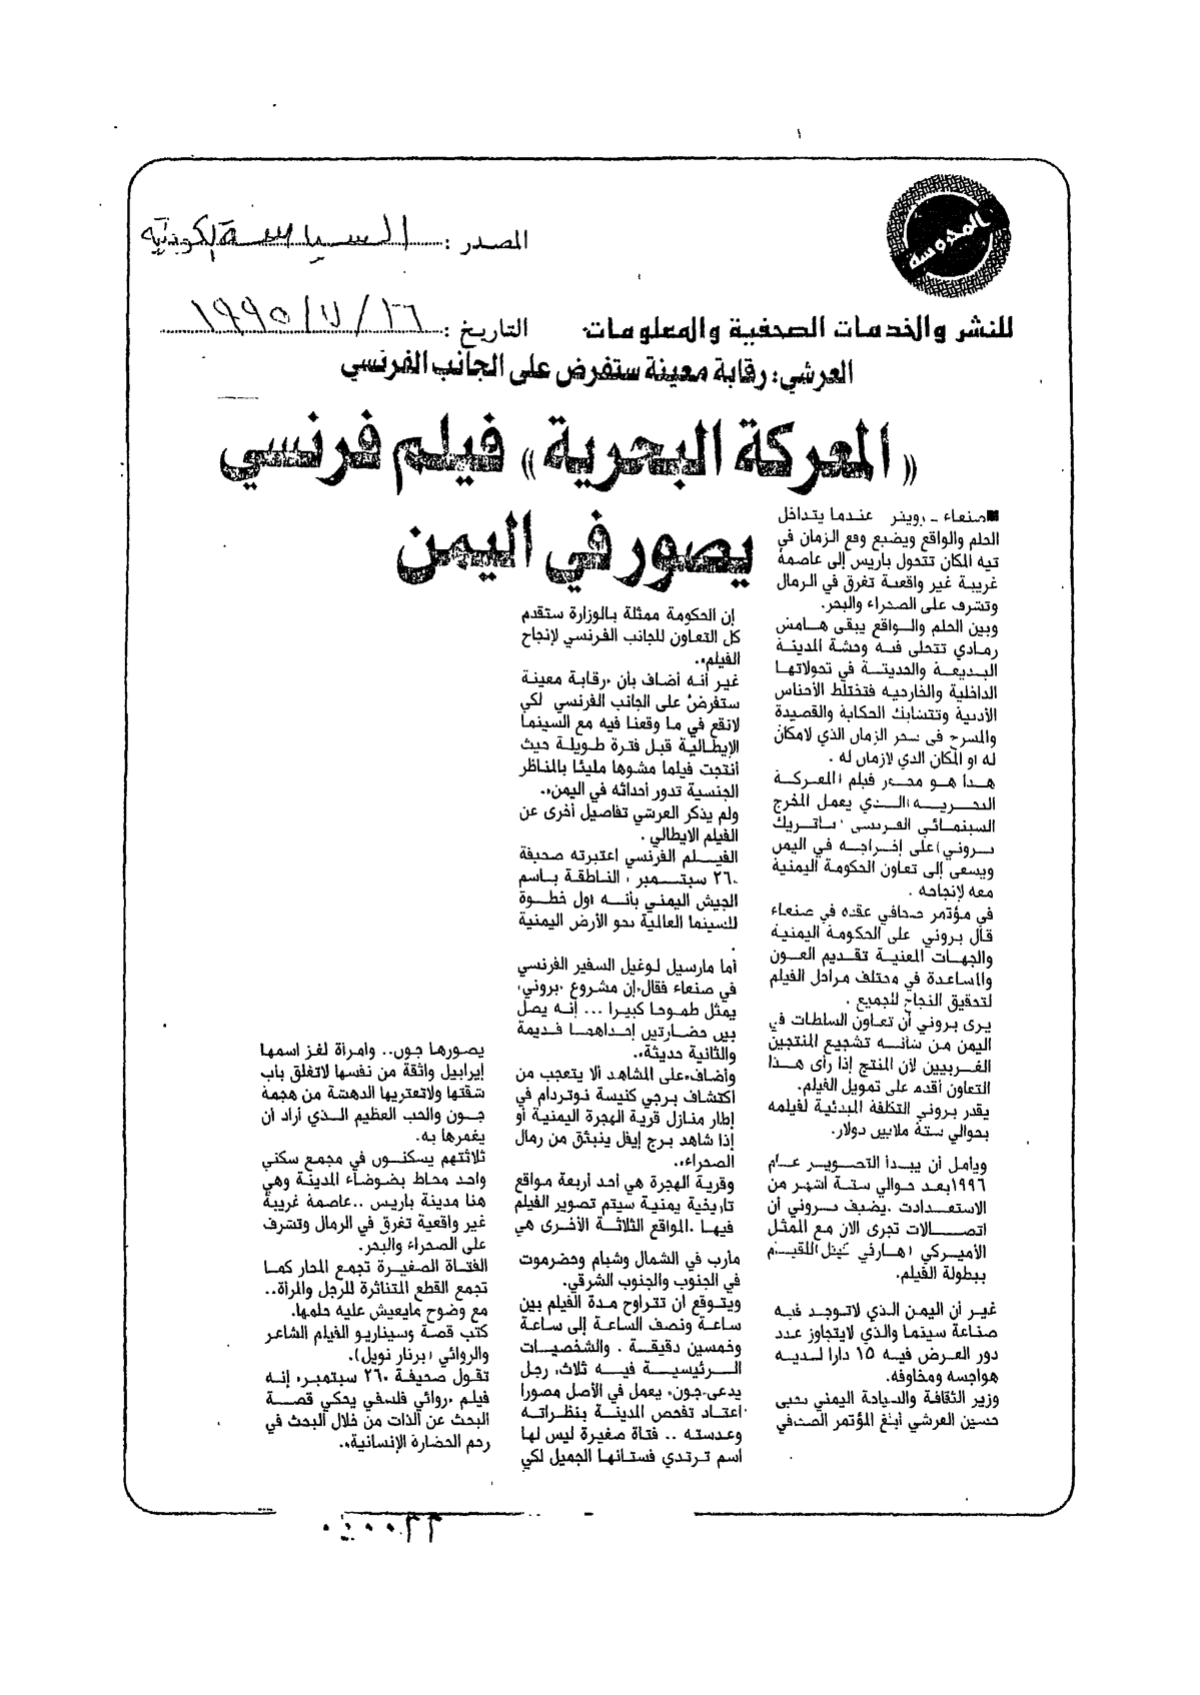 المحروسة
المصدر : السياسة الكويتية
للنشر والخدمات الصحفية والمعلومات
التاريخ : ٢٦ / ٧ / ١٩٩٥
العرشي: رقابة معينة ستفرض على الجانب الفرنسي
«المعركة البحرية» فيلم فرنسي
يصور في اليمن
■ صنعاء ـ رويتر عندما يتداخل
الحلم والواقع ويضيع وقع الزمان في
تيه المكان تتحول باريس إلى عاصمة
غريبة غير واقعية تغرق في الرمال
وتشرف على الصحراء والبحر.
وبين الحلم والواقع يبقى هامش
رمادي تتجلى فيه وحشة المدينة
البديعة والحديثة في تحولاتها
الداخلية والخارجية فتختلط الأجناس
الأدبية وتتشابك الحكاية والقصيدة
والمسرح في سحر الزمان الذي لامكان
له او المكان الذي لازمان له .
هذا هو محور فيلم «المعركة
البحرية» الذي يعمل المخرج
السينمائي الفرنسي «باتريك
بروني» على إخراجه في اليمن
ويسعى إلى تعاون الحكومة اليمنية
معه لإنجاحه .
في مؤتمر صحافي عقده في صنعاء
قال بروني على الحكومة اليمنية
والجهات المعنية تقديم العون
والمساعدة في مختلف مراحل الفيلم
لتحقيق النجاح للجميع .
يرى بروني أن تعاون السلطات في
اليمن من شأنه تشجيع المنتجين
الغربيين لأن المنتج إذا رأى هذا
التعاون أقدم على تمويل الفيلم.
يقدر بروني التكلفة المبدئية لفيلمه
بحوالي ستة ملايين دولار.
ويأمل أن يبدأ التصوير عام
١٩٩٦ بعد حوالي ستة أشهر من
الاستعدادت .يضيف بروني أن
اتصالات تجرى الان مع الممثل
الأميركي «هارفي كيتل» للقيام
ببطولة الفيلم.
غير أن اليمن الذي لاتوجد فيه
صناعة سينما والذي لايتجاوز عدد
دور العرض فيه ١٥ دارا لديه
هواجسه ومخاوفه.
وزير الثقافة والسياحة اليمني يحيى
حسين العرشي أبلغ المؤتمر الصحفي
إن الحكومة ممثلة بالوزارة ستقدم
كل التعاون للجانب الفرنسي لإنجاح
الفيلم».
غير أنه أضاف بأن «رقابة معينة
ستفرض على الجانب الفرنسي لكي
لانقع في ما وقعنا فيه مع السينما
الإيطالية قبل فترة طويلة حيث
أنتجت فيلما مشوها مليئا بالمناظر
الجنسية تدور أحداثه في اليمن».
ولم يذكر العرشي تفاصيل أخرى عن
الفيلم الايطالي .
الفيلم الفرنسي اعتبرته صحيفة
«٢٦ سبتمبر» الناطقة باسم
الجيش اليمني بأنه اول خطوة
للسينما العالية نحو الأرض اليمنية
.
أما مارسيل لوغيل السفير الفرنسي
في صنعاء فقال«إن مشروع «بروني»
يمثل طموحا كبيرا ... إنه يصل
بين حضارتين إحداهما قديمة
والثانية حديثة».
وأضاف«على المشاهد ألا يتعجب من
اكتشاف برجي كنيسة نوتردام في
إطار منازل قرية الهجرة اليمنية أو
إذا شاهد برج إيفل ينبثق من رمال
الصحراء».
وقرية الهجرة هي أحد أربعة مواقع
تاريخية يمنية سيتم تصوير الفيلم
فيها .المواقع الثلاثة الأخرى هي
مأرب في الشمال وشبام وحضرموت
في الجنوب والجنوب الشرقي.
ويتوقع أن تتراوح مدة الفيلم بين
ساعة ونصف الساعة إلى ساعة
وخمسين دقيقة . والشخصيات
الرئيسية فيه ثلاث، رجل
يدعى«جون» يعمل في الأصل مصورا
اعتاد تفحص المدينة بنظراته
وعدسته .. فتاة صغيرة ليس لها
اسم ترتدي فستانها الجميل لكي
يصورها جون.. وامرأة لغز اسمها
إيرابيل واثقة من نفسها لاتغلق باب
شقتها ولاتعتريها الدهشة من هجمة
جون والحب العظيم الذي أراد أن
يغمرها به.
ثلاثتهم يسكنون في مجمع سكني
واحد محاط بضوضاء المدينة وهي
هنا مدينة باريس ..عاصمة غريبة
غير واقعية تغرق في الرمال وتشرف
على الصحراء والبحر.
الفتاة الصغيرة تجمع المحار كما
تجمع القطع المتناثرة للرجل والمرأة..
مع وضوح مايعيش عليه حلمها.
كتب قصة وسيناريو الفيلم الشاعر
والروائي «برنار نويل».
تقول صحيفة «٢٦ سبتمبر» إنه
فيلم «روائي فلسفي يحكي قصة
البحث عن الذات من خلال البحث في
رحم الحضارة الإنسانية».